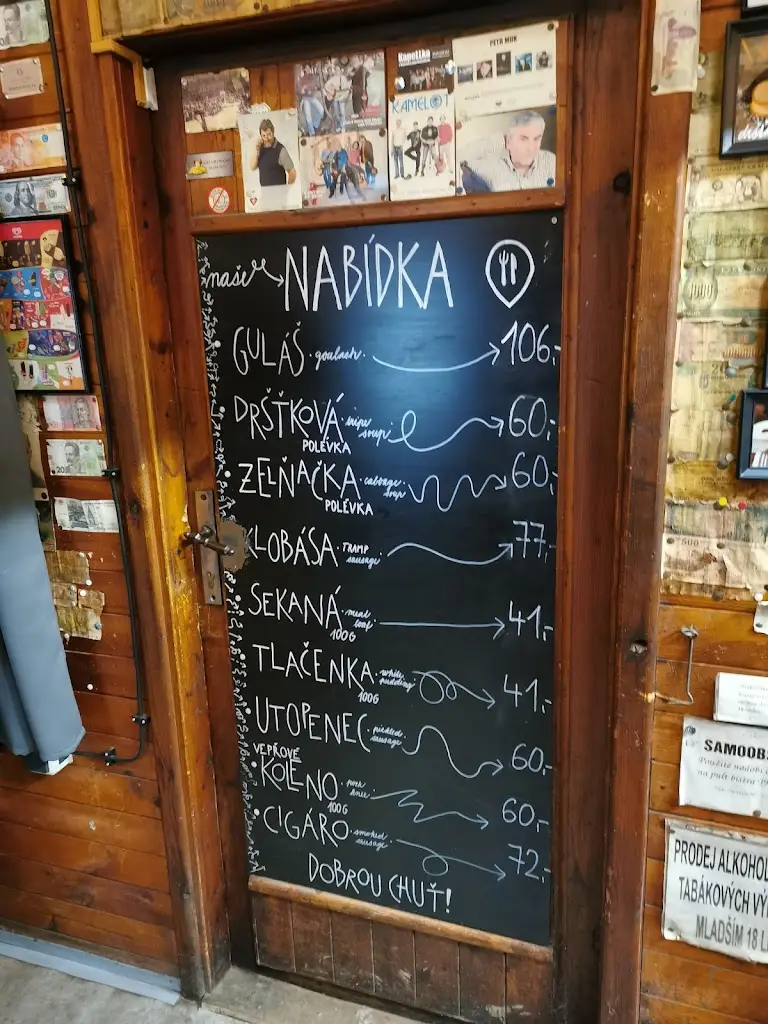 PETR MUK
Kapelka
KAMELOT
naše NABÍDKA
GULÁŠ · goulash 106,-
DRŠŤKOVÁ · tripe soup 60,-
POLÉVKA
ZELŇAČKA · cabbage soup 60,-
POLÉVKA
KLOBÁSA · TRAMP sausage 77,-
SEKANÁ · meat loaf 41,-
100G
TLAČENKA · white pudding 41,-
100G
UTOPENEC · pickled sausage 60,-
VEPŘOVÉ
KOLENO · pork knee 60,-
100G
CIGÁRO · smoked sausage 72,-
DOBROU CHUŤ!
SAMOOBS
Použité nádobí
na pult bistra
PRODEJ ALKOHOL
TABÁKOVÝCH VÝ
MLADŠÍM 18 L